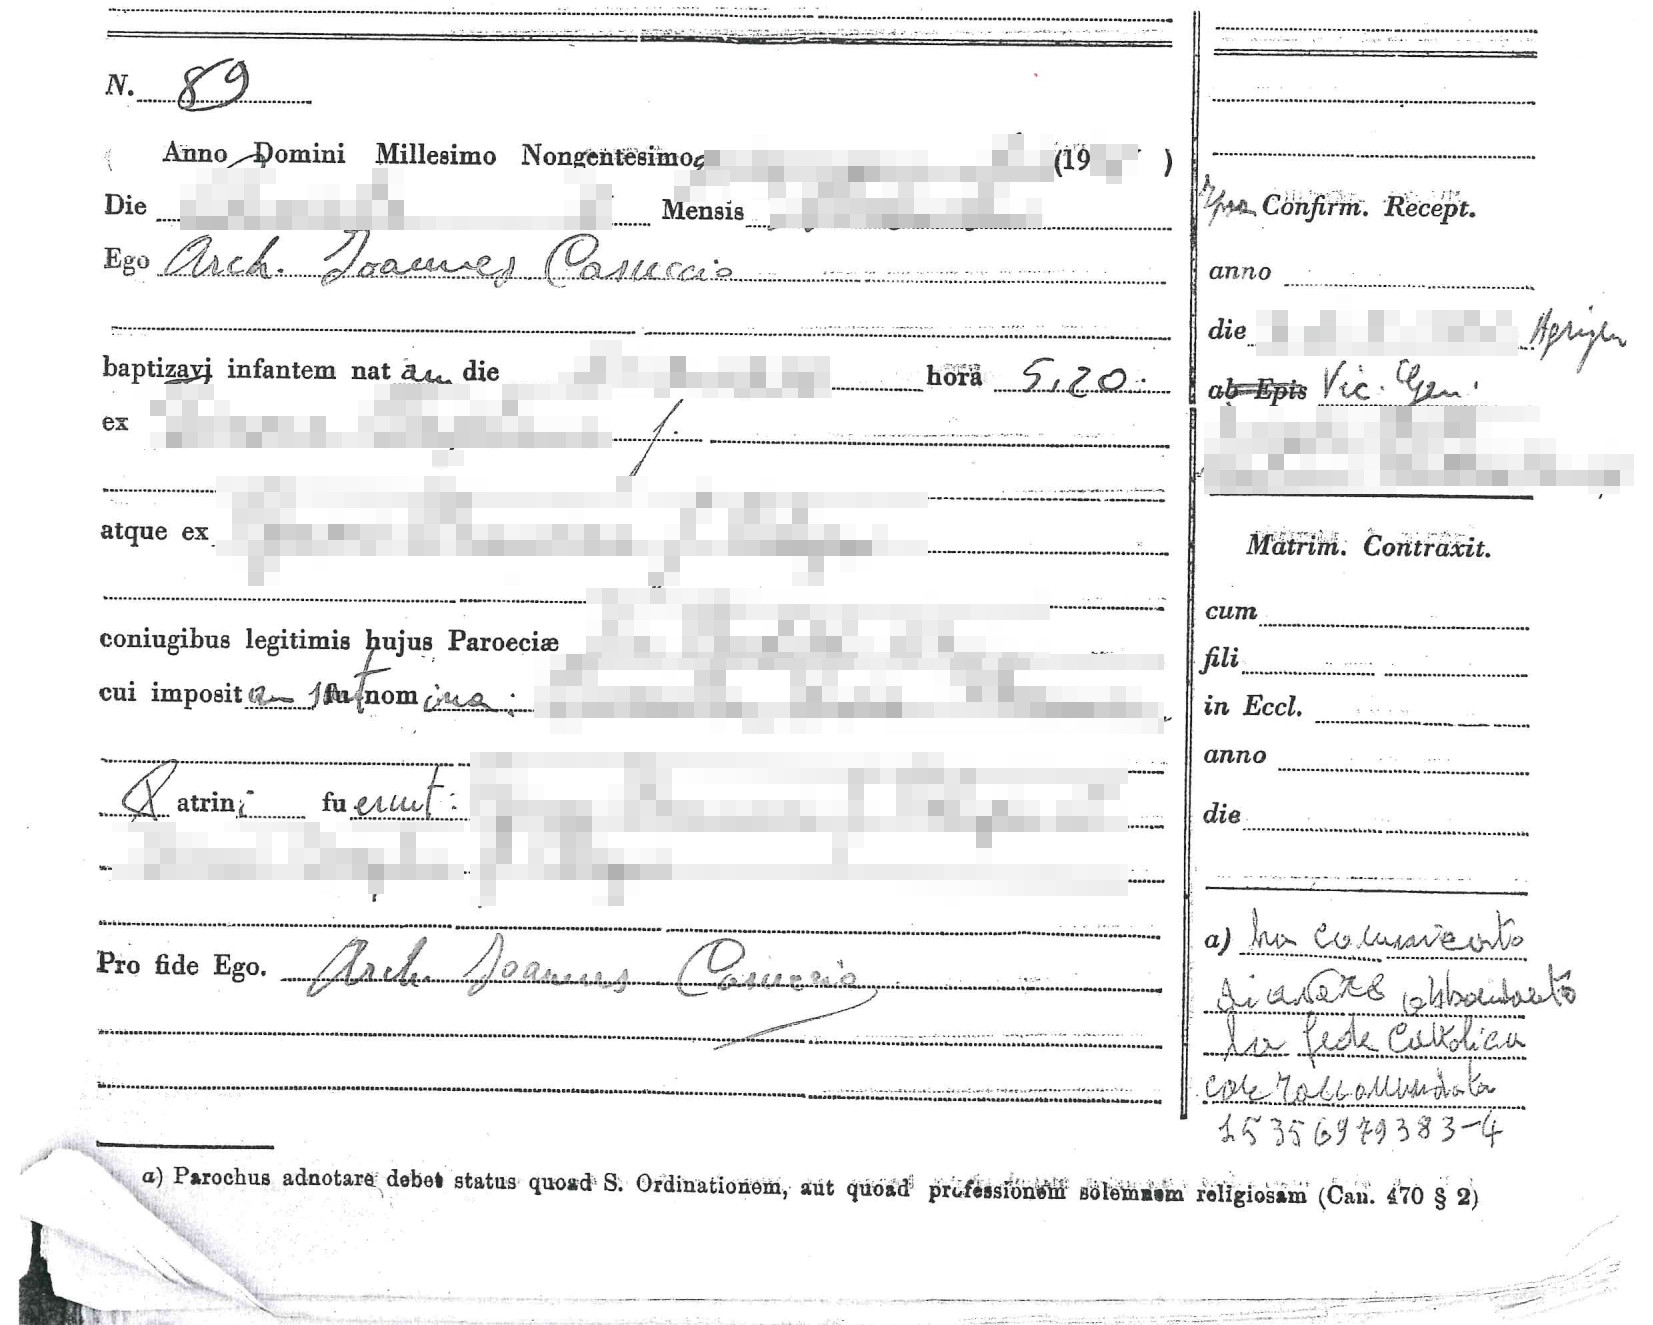 N. 89
Anno Domini Millesimo Nongentesimo (19 )
Die Mensis
Ego Arch. Joannes Casuccio
baptizavi infantem nat am die hora 5,20.
ex
atque ex
coniugibus legitimis hujus Parœciæ
cui imposita sunt nomina:
Patrini fuerunt:
Pro fide Ego. Arch. Joannes Casuccio
Confirm. Recept.
anno
die
ab Epis Vic. Gen.
Matrim. Contraxit.
cum
fili
in Eccl.
anno
die
a) ha comunicato
di avere abbandonato
la fede Cattolica
con raccomandata
15356979383-4
a) Parochus adnotare debet status quoad S. Ordinationem, aut quoad professionem solemnem religiosam (Can. 470 § 2)